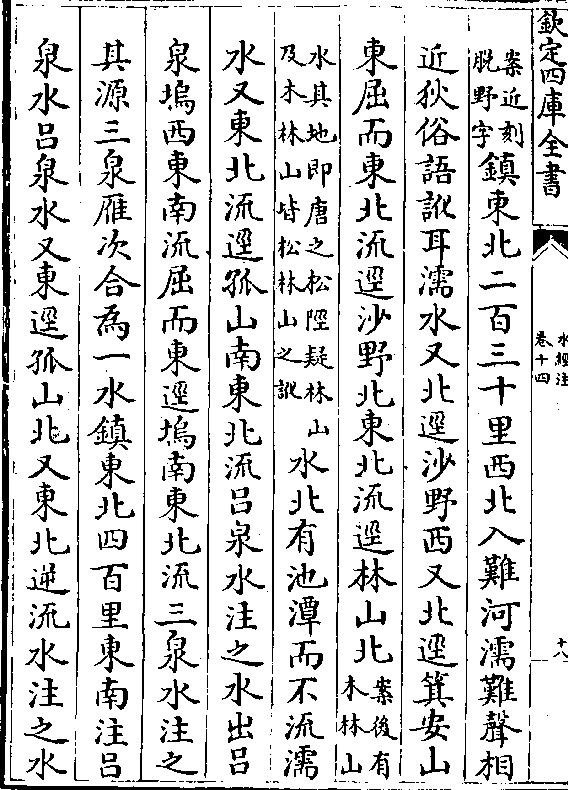 欽定四庫全書
水經注
卷十四
十八
案近刻
脫野字
鎮東北二百三十里西北入難河濡難聲相
近狄俗語訛耳濡水又北逕沙野西又北逕箕安山
東屈而東北流逕沙野北東北流逕林山北
案後有
木林山
水其地即唐之松陘疑林山
及木林山皆松林山之訛
水北有池潭而不流濡
水又東北流逕孤山南東北流呂泉水注之水出呂
泉塢西東南流屈而東逕塢南東北流三泉水注之
其源三泉雁次合為一水鎮東北四百里東南注呂
泉水呂泉水又東逕孤山北又東北逆流水注之水